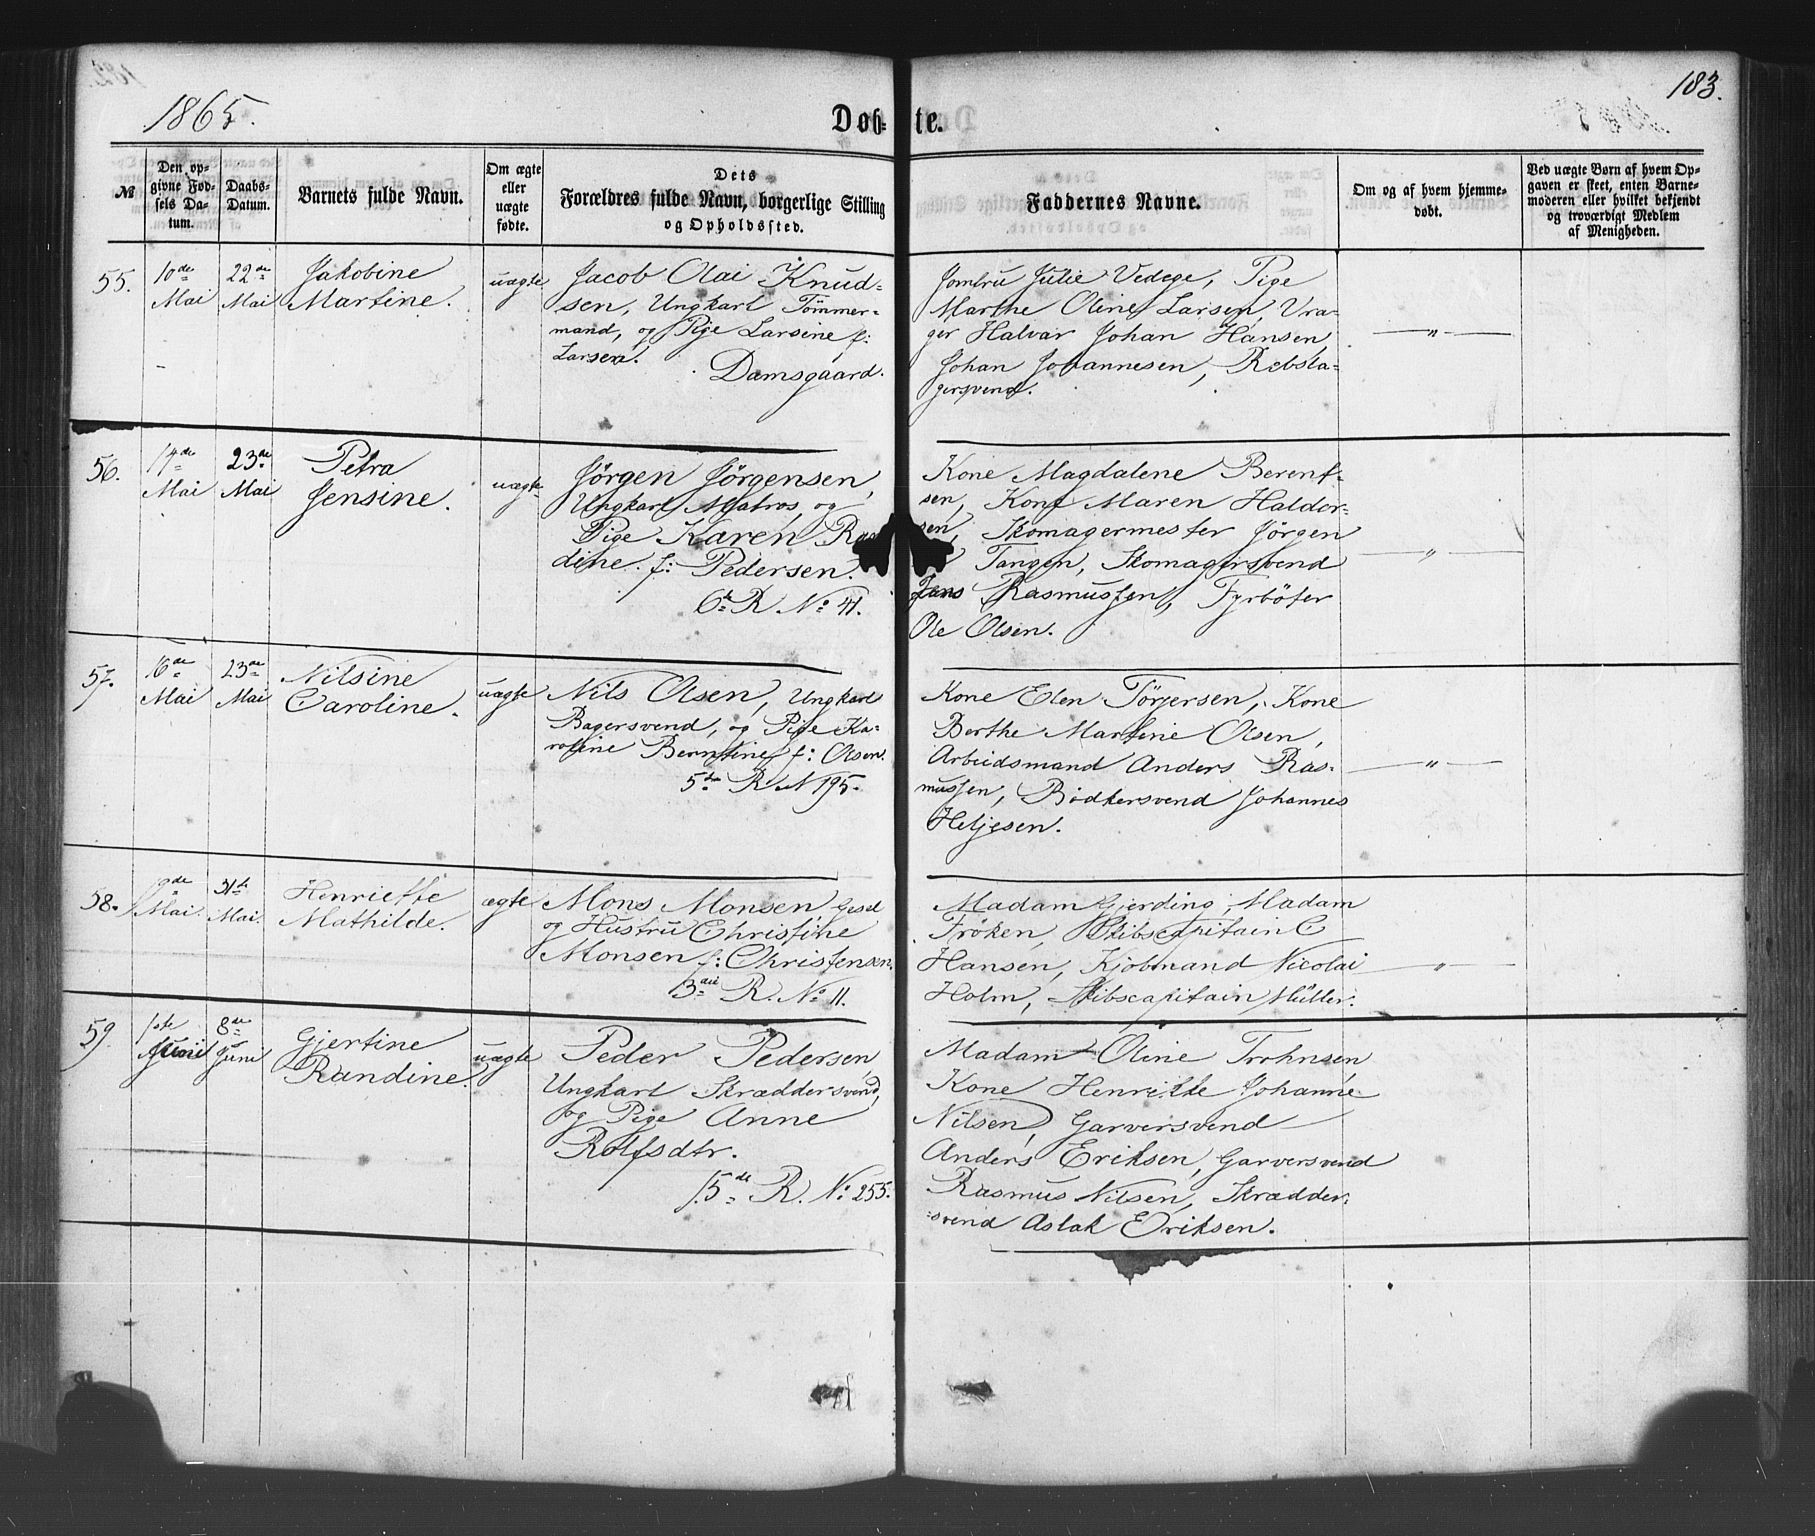 183.
1865.
Døb-te.
№
Den op-
givne Fød-
sels Da-
tum.
Daabs-
Datum.
Barnets fulde Navn.
Om ægte
eller
uægte
fødte.
Dets
Forældres fulde Navn, borgerlige Stilling
og Opholdssted.
Faddernes Navne.
Om og af hvem hjemme-
døbt.
Ved uægte Børn af hvem Op-
gaven er skeet, enten Barne-
moderen eller hvilket bekjendt
og troværdigt Medlem
af Menigheden.
55.
10de
Mai
22de
Mai
Jakobine
Martine.
uægte
Jacob Olai Knud-
sen, Ungkarl Tømmer-
mand, og Pige Larsine f:
Larsen.
Damsgaard.
Jomfru Julie Vedege, Pige
Marthe Oline Larsen, Vra-
ger Halvar Johan Hansen,
Johan Johannesen, Rebsla-
gersvend.
— " —
56.
14de
Mai
23de
Mai
Petra
Jensine.
uægte
Jörgen Jörgensen,
Ungkarl Matros, og
Pige Karen
dine. f: Pedersen.
6te R. No 41.
Kone Magdalene Berent-
sen, Kone Maren Haldor-
sen, Skomagermester Jörgen
Tangen, Skomagersvend
Jens Rasmussen, Fyrböter
Ole Olsen.
— " —
57.
16de
Mai
23de
Mai
Nilsine
Caroline.
uægte
Nils Olsen, Ungkarl
Bagersvend, og Pige Ka-
roline Berntine f: Olsen.
5te R. N 195.
Kone Elen Törjersen, Kone
Berthe Martine Olsen,
Arbeidsmand Anders Ras-
mussen, Bödkersvend Johannes
Heljesen.
— " —
58.
Mai.
31te
Mai.
Henriette
Mathilde.
ægte
Mons Monsen,
og Hustru Christine
Monsen f: Christensen.
R. No 11.
Madam Gjerding, Madam
Fröken, Skibscapitain C
Hansen, Kjöbmand Nicolai
Holm, Skibscapitain Müller.
— " —
59.
1ste
Juni
8de
Juni
Gjertine
Randine.
uægte
Peder Pedersen,
Ungkarl Skræddersvend,
og Pige Anne
Rolfsdtr.
15de R. No 255.
Madam Oline Trohnsen,
Kone Henriette Johanne
Nilsen, Garversvend
Anders Eriksen, Garversvend
Rasmus Nilsen, Skrædder-
svend Aslak Eriksen.